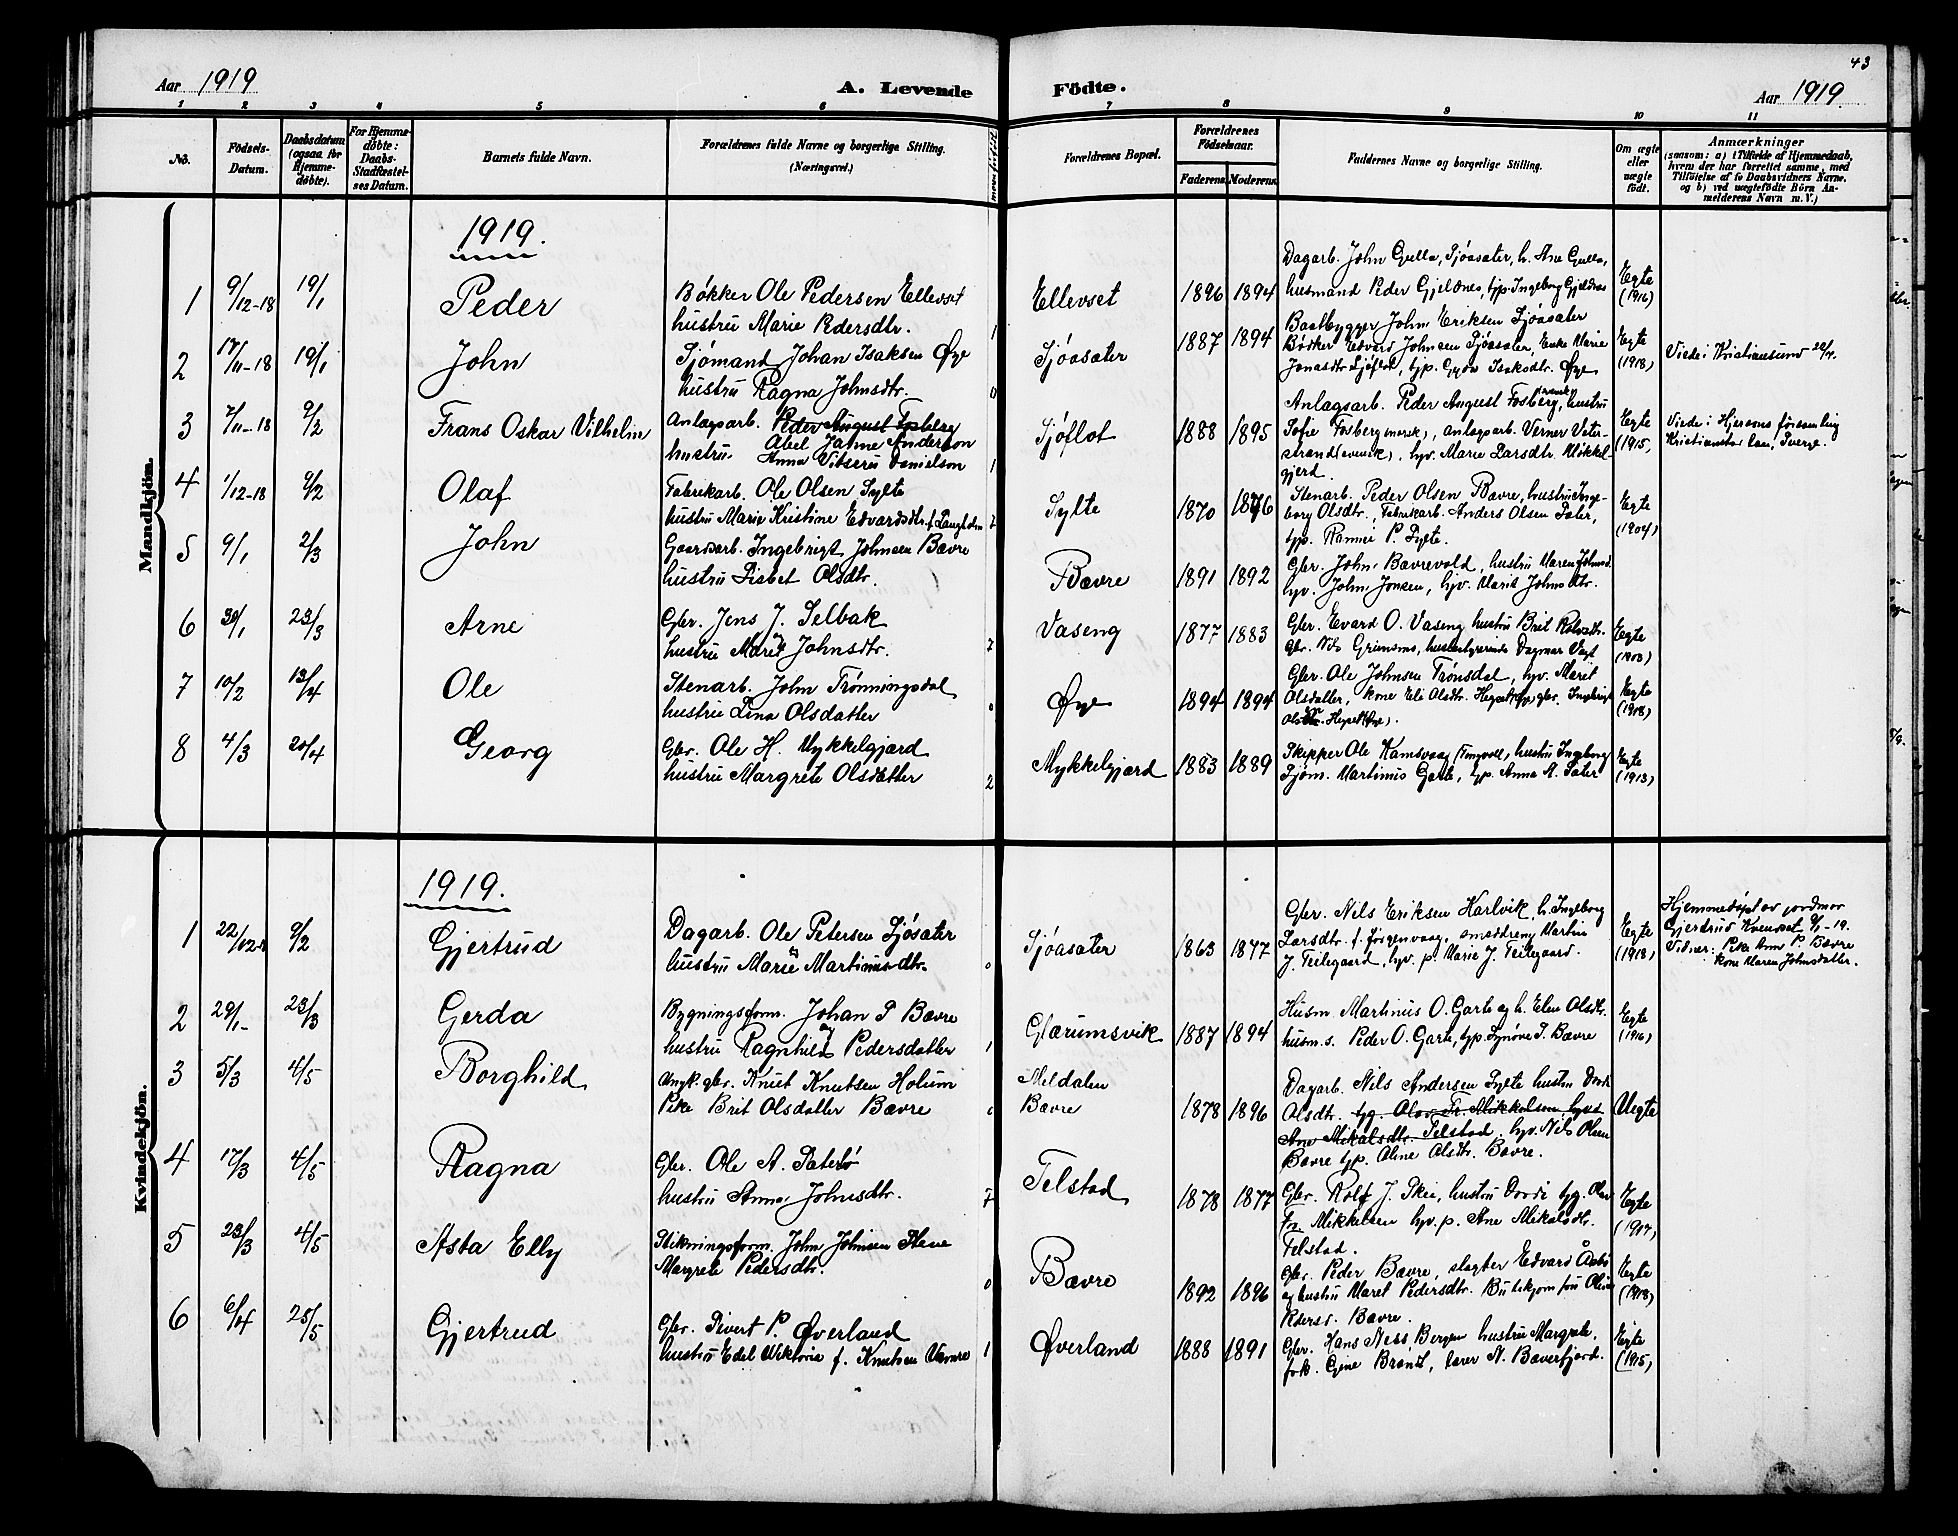 43
Aar 1919 A. Levende Födte. Aar 1919
1 2 3 4 5 6 7 8 9 10 11
No. Födsels-Datum. Daabsdatum (ogsaa for Hjemme-døbte). For Hjemme-døbte: Daabs-Stadfæstel-ses Datum. Barnets fulde Navn. Forældrenes fulde Navne og borgerlige Stilling. (Næringsvei.) Forældrenes Bopæl. Forældrenes Födselsaar. Faderens. Moderens. Faddernes Navne og borgerlige Stilling. Om ægte eller uægte födt. Anmærkninger (saasom: a) i Tilfælde af Hjemmedaab, hvem der har forrettet samme, med Tilföielse af to Daabsvidners Navne, og b) ved uægtefödte Börn An-melderens Navn m. V.)
Mandkjön.
1919.
1 9/12-18 19/1 Peder Bøkker Ole Pedersen Ellevset
hustru Marie Pedersdtr. 1
Ellevset 1896 1894 Dagarb. John Gulla, Sjøasæter, h. Ane Gulla,
husmand Peder Gjeldnes, tjp. Ingeborg Gjeldnes
Egte (1916)
2 17/11-18 19/1 John Sjømand Johan Isaksen Øye
hustru Ragna Johnsdtr. 0
Sjøasæter 1887 1894 Baatbygger John Eriksen Sjøasæter
Bødker Edvard Johnsen Sjøasæter, Enke Marie
Jonasdtr Sjøflot, tjp. Gyda Isaksdtr. Øye
Egte (1918) Viede i Kristiansund 22/7.
3 7/11-18 9/2 Frans Oskar Vilhelm Anlagsarb. Peder August Fosberg
Abel Janne Anderson
hustru Anna Vitseru Danielson 1
Sjøflot 1888 1895 Anlagsarb. Peder August Fosberg, hustru
Sofie Fosberg (norsk), anlagsarb. Verner Veter-
strand (svensk), hv. Marie Larsdtr. Møkkel-
gjerd
Egte (1915) Viede i Hjersons församling
Kristianstar læn, Sverge.
4 1/12-18 9/2 Olaf Fabrikarb. Ole Olsen Sylte
hustru Marie Kristine Edvardsdtr. f. Langholm 7
Sylte 1870 1876 Stenarb. Peder Olsen Bævre, hustru Inge-
borg Olsdtr., Fabrikarb. Anders Olsen Sæter,
tjp. Rannei P. Sylte.
Egte (1904)
5 9/1 2/3 John Gaardsarb. Ingebrigt Johnsen Bævre
hustru Lisbet Olsdtr.
Bævre 1891 1892 Gbr. John Bævrevold, hustru Maren Johnsd.
hv. John Jonsen, hv. Marit Johnsdtr.
6 30/1 23/3 Arne Gbr. Jens J. Selbak
hustru Marit Johnsdtr. 7
Vaseng 1877 1883 Gbr. Evard O. Vaseng hustru Brit Rolvsdtr.
Gbr. Nils Grimsmo, husbestyrerinde Dagmar Vagt
Egte (1903)
7 10/2 13/4 Ole Stenarb. John Trønningsdal
hustru Lina Olsdatter 0
Øye 1894 1894 Gbr. Ole Johnsen Trønsdal, hv. Marit
Olsdatter, kone Eli Olsdtr. Hegset, gbr. Ingebrigt
Olsen Hegset.
Egte (1918)
8 4/3 20/4 Georg Gbr. Ole H. Mykkelgjærd
hustru Margrete Olsdatter 2
Mykkelgjærd 1883 1889 Skipper Ole Kamsvaag (Tingvoll), hustru Ingeborg
Sjøm. Martinus Garte, tjp. Anna A. Sæter
Egte (1913)
Kvindekjön.
1919.
1 22/12-18 9/2 Gjertrud Dagarb. Ole Petersen Sjøsæter
hustru Marie Martinusdtr. 0
Sjøasæter 1863 1877 Gbr. Nils Eriksen Harlvik, h. Ingeborg
Larsdtr. f. Jørgenvaag, smeddreng Martin
J. Teilegaard, hv. p. Marie J. Teilegaard.
Egte (1918) Hjemmedøpt av jordmor
Gjertrud Kvendset 9/1-19.
Vidner: Pike Ane P. Bævre
kone Maren Johnsdatter.
2 29/1 23/3 Gerda Bygningsform. Johan P. Bævre
hustru Ragnhild Pedersdatter 1
Glærumsvik 1887 1894 Husm. Martinus O. Garte og h. Elen Olsdtr.
husm. s. Peder O. Garte, tjp. Synøve P. Bævre
Egte (1916)
3 5/3 4/5 Borghild Ungk. gbr. Knut Knutsen Holum
Pike Brit Olsdatter Bævre 0
Meldalen
Bævre 1878 1896 Dagarb. Nils Andersen Sylte hustru Dordi
Olsdtr. tjg. Olav Fr. Mikkelsen, hv.
Ane Mikalsdtr. Telstad. hv. Nils Olsen
Bævre tjp. Aline Olsdtr. Bævre.
Uegte
4 17/3 4/5 Ragna Gbr. Ole A. Sæterbø
hustru Anna Johnsdtr. 7
Telstad 1878 1877 Gbr. Rolf J. Skei, hustru Dordi tjg. Olav
Fr. Mikkelsen hv. p. Ane Mikalsdtr.
Telstad.
Egte (1917)
5 23/3 4/5 Asta Elly Stikningsform. John Johnsen Stene
Margrete Pedersdtr. 0
Bævre 1892 1896 Gbr. Peder Bævre, slagter Edvard Aasbø
og hustru Maret Pedersdtr. Butikjomfru Oline
Pedersd. Bævre.
Egte (1918)
6 6/4 25/5 Gjertrud Gbr. Sivert P. Øverland
hustru Edel Viktoria f. Knutsen Vamre 1
Øverland 1888 1891 Gbr. Hans Ness, Bergen hustru Margrete,
frk. Gine Brandt, lærer N. Bæverfjord.
Egte (1915)